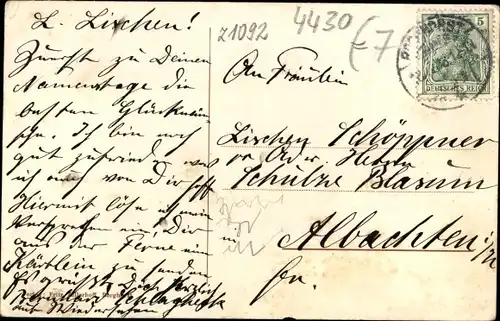 L. Lischen!
Zuerst zu Deinen
Namenstage die
besten Glückwün
sche. Ich bin noch
gut zufrieden was
ich auch von Dir hoffe
Hiermit löse ich mein
Versprechen ein, Dir
aus der Ferne ein
Kärtlein zu senden
Es grüßt Dich herzlich
Schlagheck
auf Wiedersehen
z1092
4430
7
5
DEUTSCHES REICH
An Fräulein
Lischen Schöppner
Schulze Blasum
in
Albachten i/W